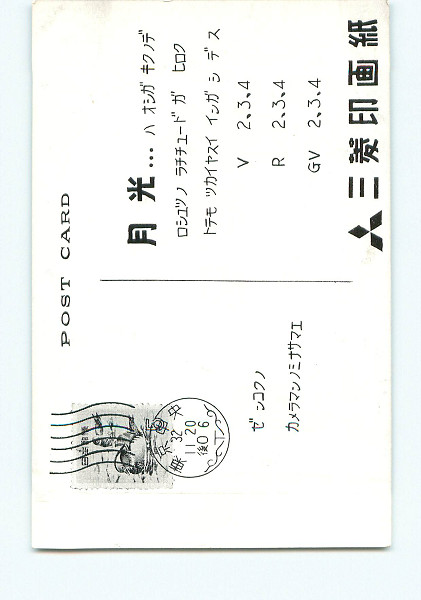 POST CARD
月光... ハ オシガ キクノデ
ロシュツノ ラチチュード ガ ヒロク
トテモ ツカイヤスイ インガシ デス
V 2.3.4
R 2.3.4
GV 2.3.4
三菱印画紙
ゼンコクノ
カメラマンノミナサマエ
東京中央
32
11 20
後0 6